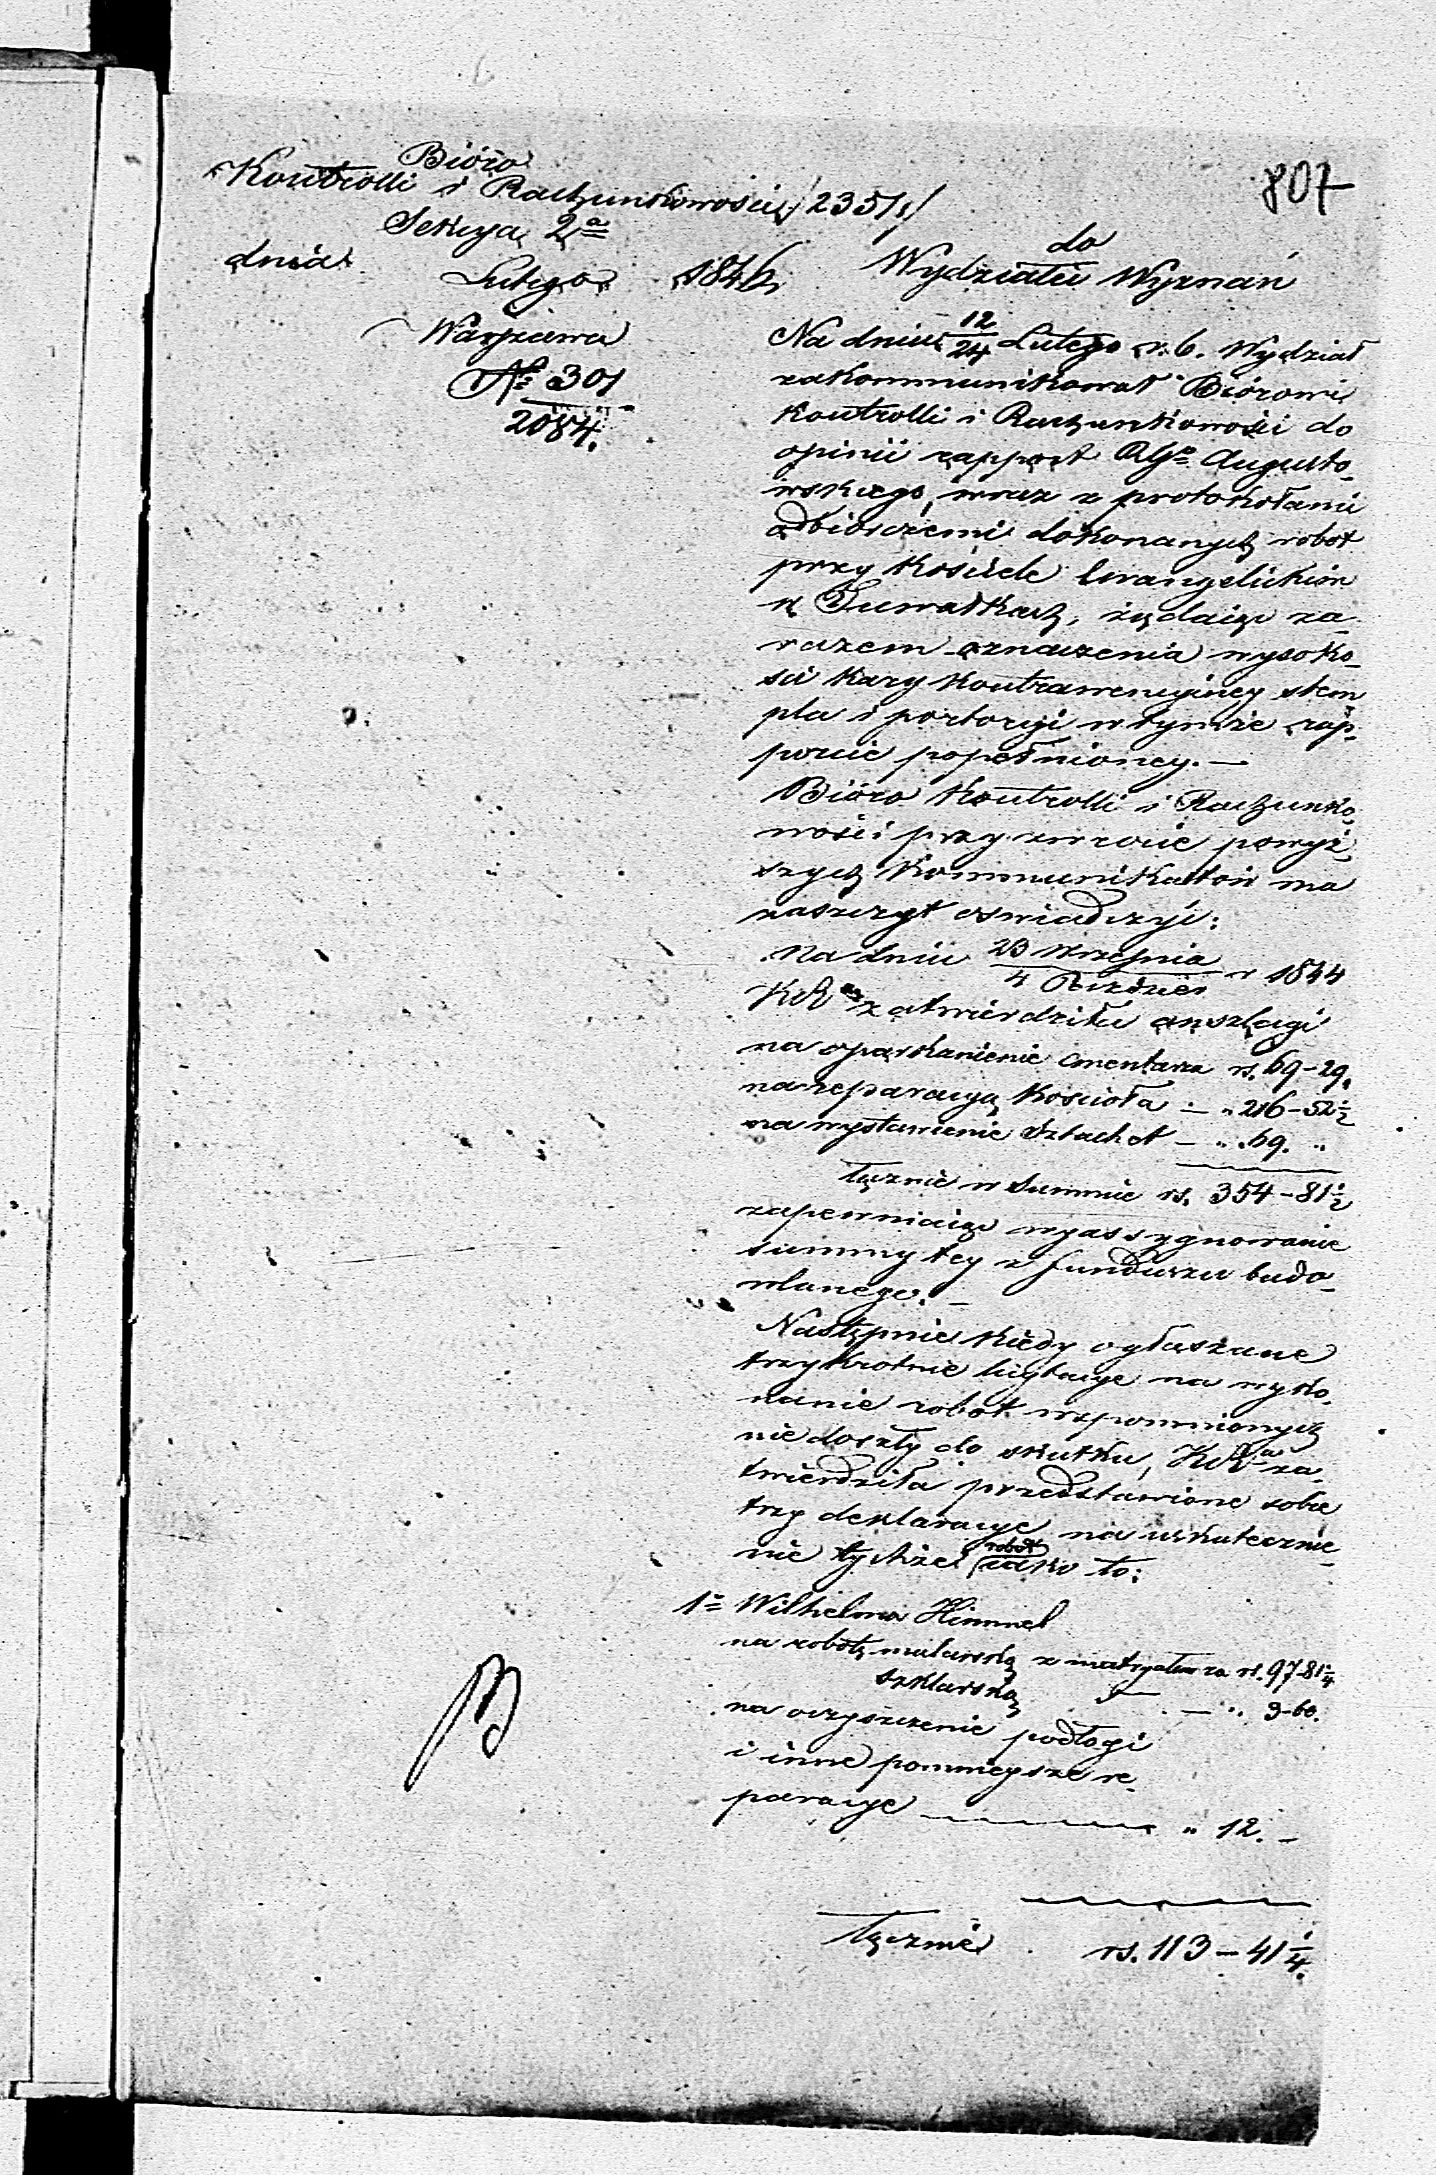 807
Bióro
Kontrolli i Rachunkowości /2351/
Sekcya 2ª
dnia Lutego 1846
Warszawa
Nº 301
2084.
do
Wydziału Wyznań
Na dniu 12/24 Lutego r. b. Wydział
zakommunikował Biórowi
Kontrolli i Rachunkowości do
opinii rapport RGo Augusto-
wskiego, wraz z protokołami
odbiorczemi dokonanych robot
przy Kościele Ewangelickim
w Suwałkach, żądaiąc za-
razem oznaczenia wysoko-
ści kary kontrawencyiney stem
pla i portoryi w tymże rap-
porcie popełnioney. —
Bióro Kontrolli i Rachunko-
wości przy zwrocie powyż-
szych Kommunikatów ma
zaszczyt oświadczyć:
Na dniu 23 Września / 4 Paździer r 1844
KRa zatwierdziła anszlagi
na oparkanienie cmentarza rs. 69-29.
na reparacyą Kościoła — „ 216-52½
na wystawienie sztachet — „ 69. „
łącznie w Summie rs. 354-81½
zapewniaiąc wyassygnowanie
summy tey z funduszu budo-
wlanego. —
Następnie kiedy ogłaszane
trzykrotnie licytacye na wyko-
nanie robot wspomnionych
niedoszły do skutku, KRa za-
twierdziła przedstawione sobie
trzy deklaracye na uskutecznie-
nie tychże robot iako to:
1º Wilhelma Himmel
na robotę malarską z matryałem za rs. 97-81¼
szklarską — „ 3-60.
na oczyszczenie podłogi
i inne pomnieysze re-
paracye — „ 12. —
łącznie rs. 113-41¼.